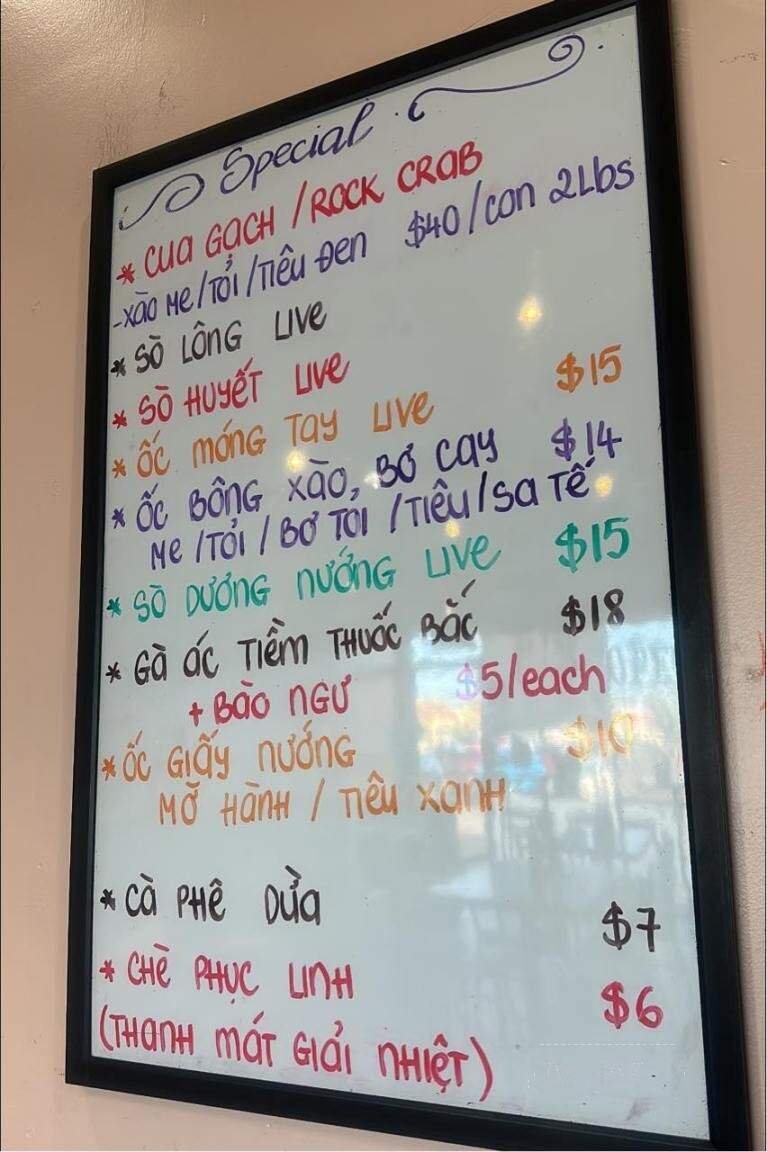 Special
* CUA GẠCH / ROCK CRAB
- XÀO ME / TỎI / TIÊU ĐEN $40 / CON 2Lbs
* SÒ LÔNG LIVE
* SÒ HUYẾT LIVE
* ỐC MÓNG TAY LIVE $15
* ỐC BÔNG XÀO, BÓ CAY $14
ME / TỎI / BƠ TỎI / TIÊU / SA TẾ
* SÒ DƯƠNG NƯỚNG LIVE $15
* GÀ ÁC TIỀM THUỐC BẮC $18
+ BÀO NGƯ $5/each
* ỐC GIẤY NƯỚNG $10
MỠ HÀNH / TIÊU XANH
* CÀ PHÊ DỪA $7
* CHÈ PHỤC LINH $6
(THANH MÁT GIẢI NHIỆT)